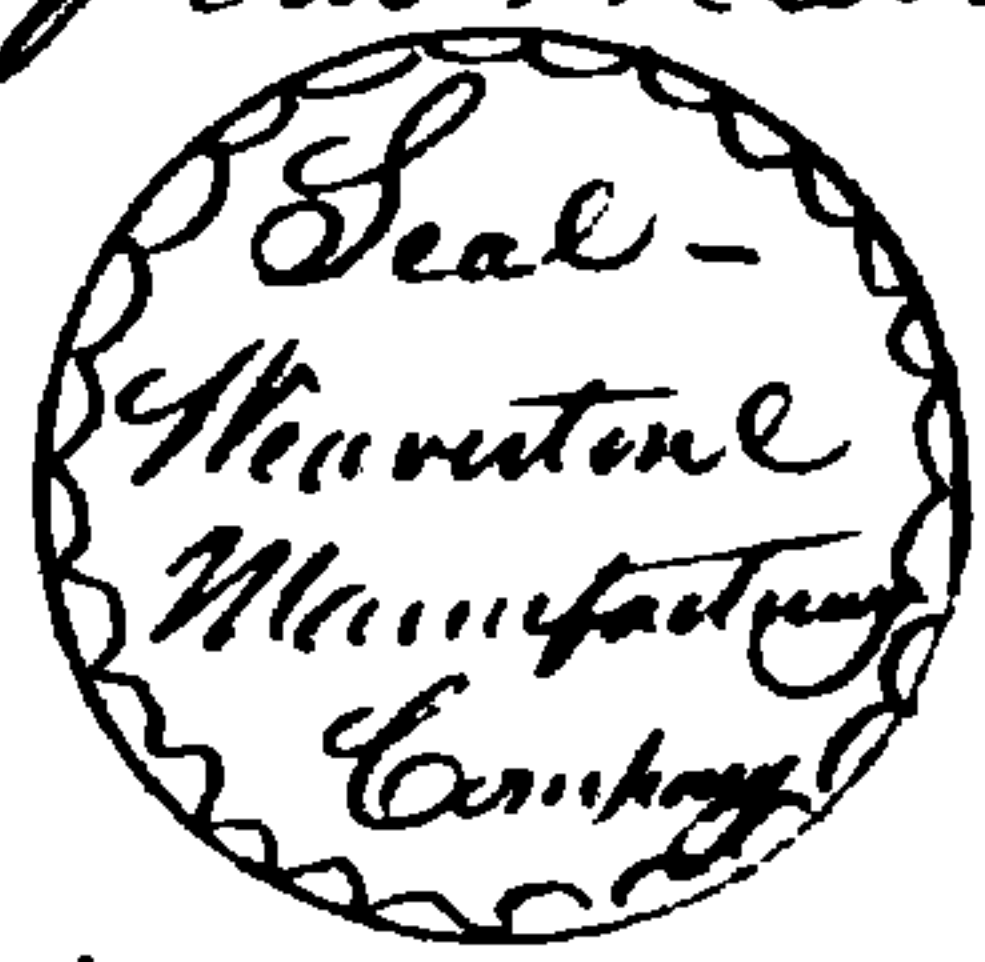 Seal -
Weaverton
Manufacturing
Company